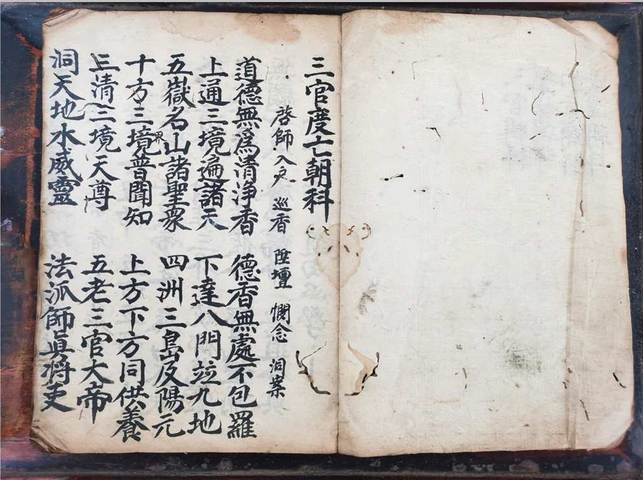 三官度亡朝科
啓師入户 巡香 陞壇 憫念 洞案
道德無爲清淨香 德香無處不包羅
上通三境遍諸天 下達八門竝九地
五嶽名山諸聖衆 四洲三島及陽元
十方三境界普聞知 上方下方同供養
三清三境天尊 五老三官大帝
洞天地水威靈 法派師眞將吏